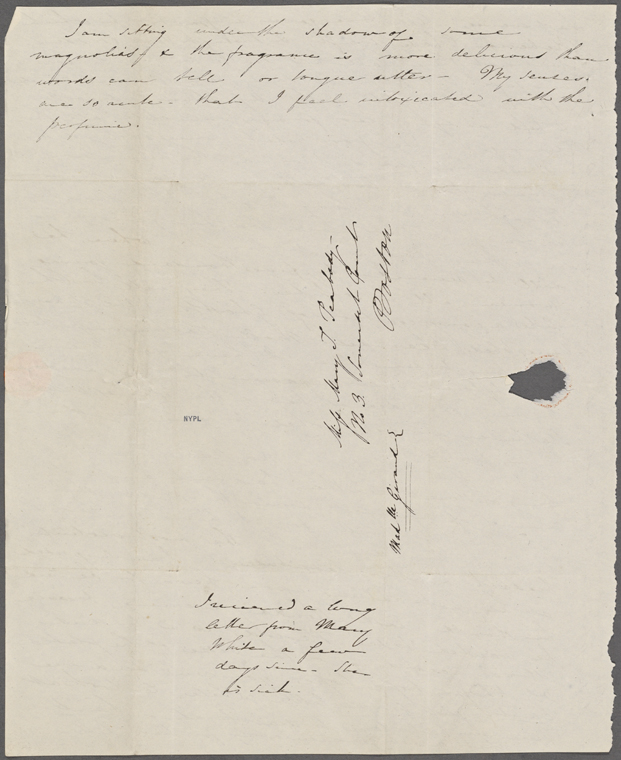 I am sitting under the shadow of some
magnolias, & the fragrance is more delicious than
words can tell or tongue utter - My senses
are so acute - that I feel intoxicated with the
perfume.
Miss Mary T. Peabody -
No 3. Somerset Court
Boston
Mad. M
NYPL
I received a long
letter from Mary
White a few
days since - She
is sick.